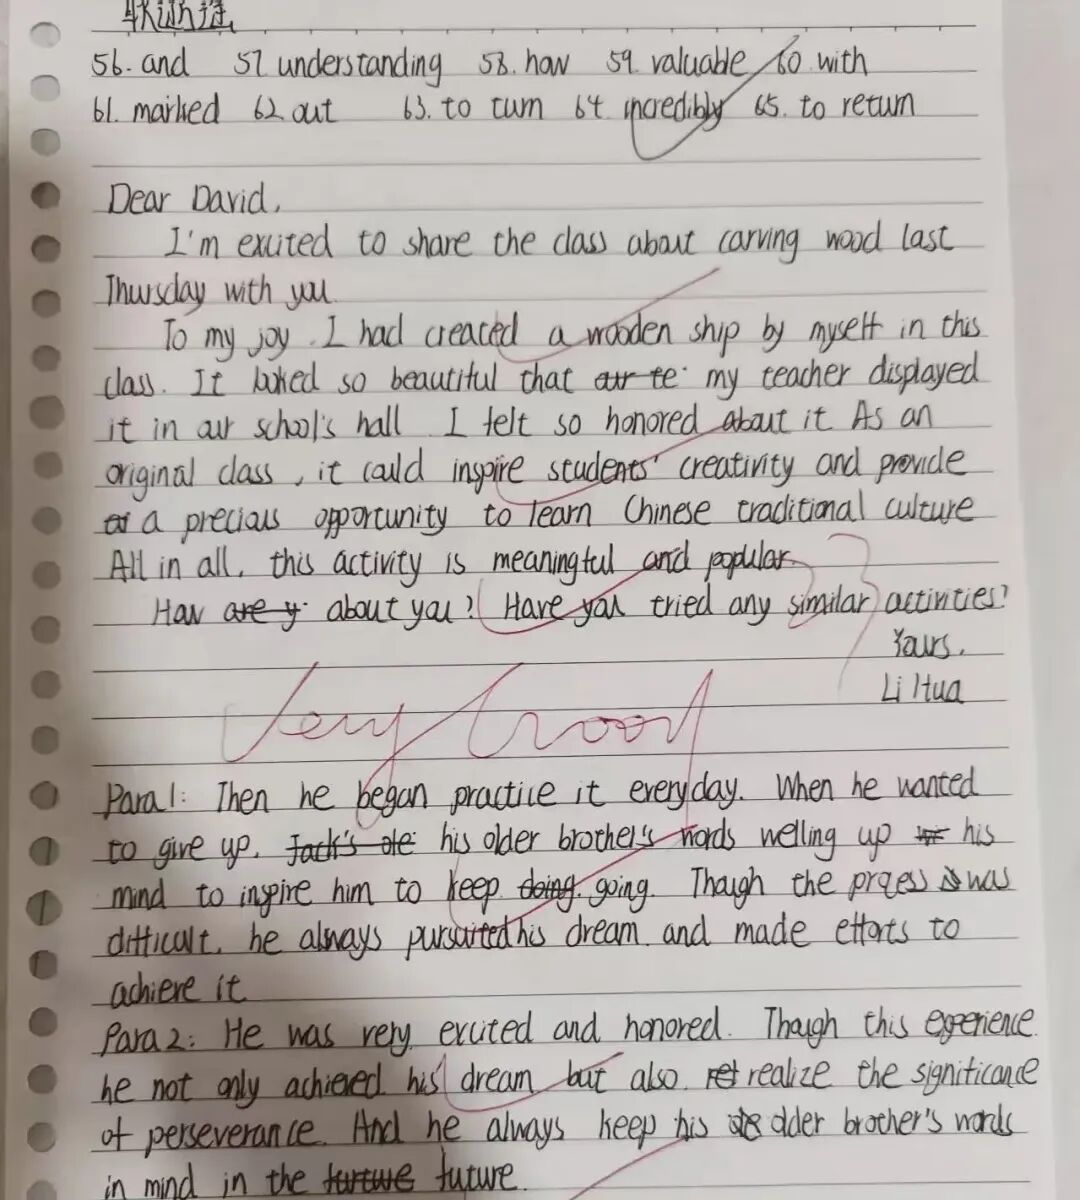 56. and 57. understanding 58. how 59. valuable 60. with
61. marked 62. out 63. to turn 64. incredibly 65. to return
Dear David,
I'm excited to share the class about carving wood last
Thursday with you.
To my joy, I had created a wooden ship by myself in this
class. It looked so beautiful that my teacher displayed
it in our school's hall. I felt so honored about it. As an
original class, it could inspire students' creativity and provide
a precious opportunity to learn Chinese traditional culture.
All in all, this activity is meaningful and popular.
How about you? Have you tried any similar activities?
Yours,
Li Hua
Very Good
Para1: Then he began practice it everyday. When he wanted
to give up, his older brother's words welling up his
mind to inspire him to keep going. Though the process was
difficult, he always pursuited his dream and made efforts to
achieve it.
Para2: He was very excited and honored. Though this experience
he not only achieved his dream but also realize the significance
of perseverance. And he always keep his older brother's words
in mind in the future.